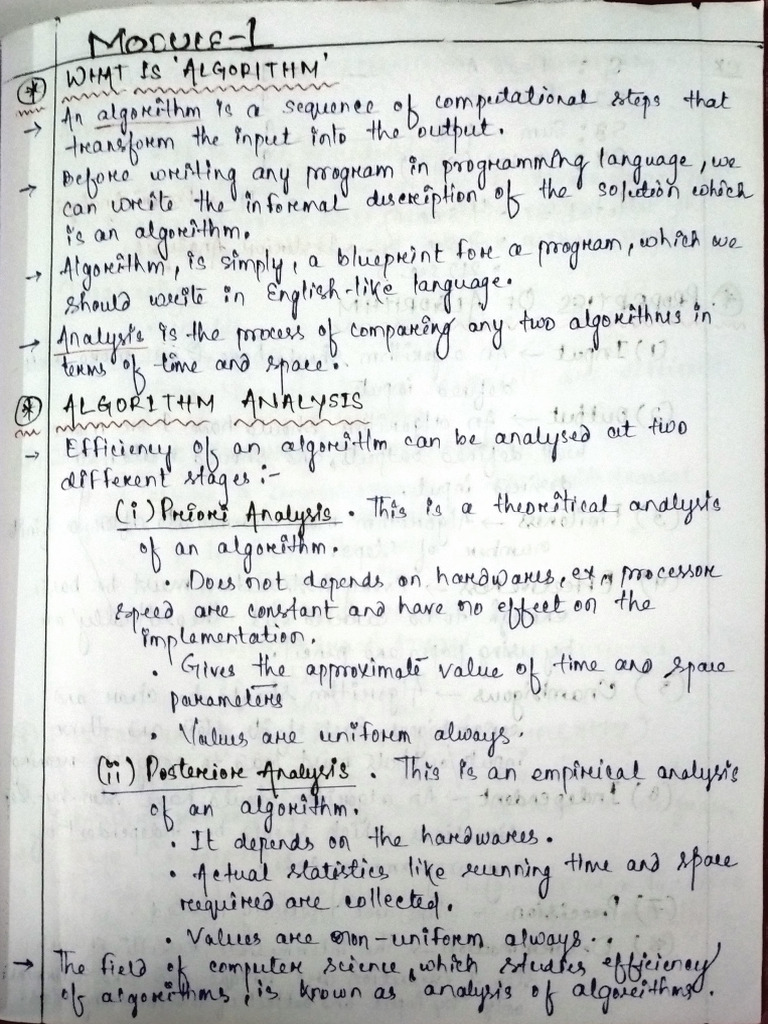 MODULE-1
* WHAT IS 'ALGORITHM'
→ An algorithm is a sequence of computational steps that
transform the input into the output.
→ Before writing any program in programming language, we
can write the informal description of the solution which
is an algorithm.
→ Algorithm, is simply, a blueprint for a program, which we
should write in English-like language.
→ Analysis is the process of comparing any two algorithms in
terms of time and space.
* ALGORITHM ANALYSIS
→ Efficiency of an algorithm can be analysed at two
different stages :-
(i) Priori Analysis . This is a theoritical analysis
of an algorithm.
• Does not depends on hardwares, ex, processor
speed are constant and have no effect on the
implementation.
• Gives the approximate value of time and space
parameters
• Values are uniform always.
(ii) Posterior Analysis . This is an empirical analysis
of an algorithm.
• It depends on the hardwares.
• Actual statistics like running time and space
required are collected.
• Values are non-uniform always.
→ The field of computer science, which studies efficiency
of algorithms, is known as analysis of algorithms.